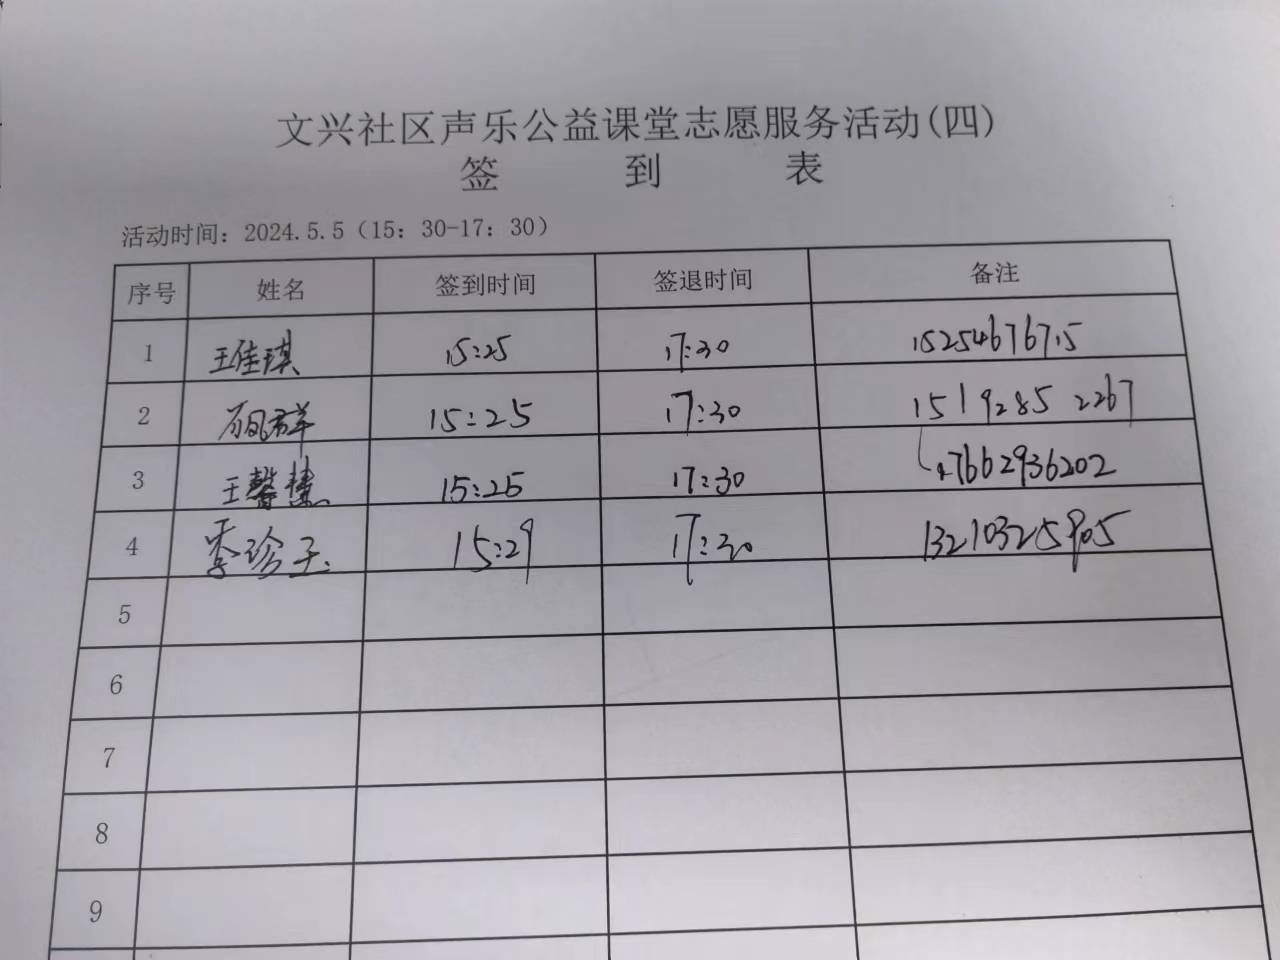 文兴社区声乐公益课堂志愿服务活动(四)
签 到 表
活动时间：2024.5.5（15：30-17：30）
序号 姓名 签到时间 签退时间 备注
1 王佳琪 15:25 17:30 15254676715
2 15:25 17:30 1519285 2267
3 王馨慧 15:25 17:30 17662936202
4 季珍子 15:29 17:30 13210325905
5
6
7
8
9